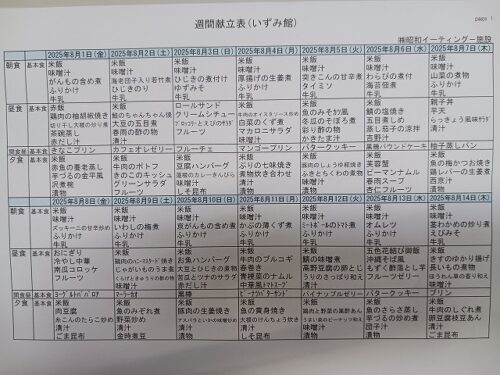 週間献立表(いずみ館)
page 1
㈱昭和イーティングー施設
2025年8月1日(金) 2025年8月2日(土) 2025年8月3日(日) 2025年8月4日(月) 2025年8月5日(火) 2025年8月6日(水) 2025年8月7日(木)
朝食 基本食 米飯 米飯 米飯 米飯 米飯 米飯 米飯
味噌汁 味噌汁 味噌汁 味噌汁 味噌汁 味噌汁 味噌汁
がんもの含め煮 海老団子入り若竹煮 ひじきの煮付け 厚揚げの生姜煮 突きこんの甘辛煮 わらびの煮付 山菜の煮物
ふりかけ ひじきのり ゆずみそ ふりかけ タイミソ 海苔佃煮 ふりかけ
牛乳 牛乳 牛乳 牛乳 牛乳 牛乳 牛乳
昼食 基本食 赤飯 米飯 ロールサンド 米飯 米飯 米飯 親子丼
鶏肉の柚胡椒焼き 鮭のちゃんちゃん焼 クリームシチュー 牛肉のオイスターソース炒め 魚のみそカツ 鯖の塩焼き 芋天
切り干し大根の炒り煮 大豆の五目煮 白菜のくず煮 瓜の冬瓜煮 五目豆煮 らっきょう風味漬け
茶碗蒸し 春雨の酢の物 フルーツ マカロニサラダ 彩り酢の物 蒸し茄子の涼拌 清汁
赤だし汁 清汁 味噌汁 かきたま汁 西京汁
間食昼 基本食 きなこプリン カフェオレゼリー フルーチェ マンゴープリン バタークッキー 黒糖パウンドケーキ 柚子蒸しパン
夕食 基本食 米飯 米飯 米飯 米飯 米飯 米飯 米飯
赤魚の葱老蒸し 牛肉のポトフ 豆腐ハンバーグ ぶりの七味焼き 豚肉のしょうゆ糀焼き 芙蓉蟹 魚の梅かつお焼き
芋づるの金平風 きのこのキッシュ 蓮根のカレーきんぴら 煮物炊き合わせ ふきとちくわの煮物 ピーマンナムル 鶏レバーの生姜煮
沢煮椀 グリーンサラダ 味噌汁 清汁 味噌汁 春雨スープ 西京汁
漬物 フルーツ しそ昆布 漬物 漬物 杏仁フルーツ 漬物
2025年8月8日(金) 2025年8月9日(土) 2025年8月10日(日) 2025年8月11日(月) 2025年8月12日(火) 2025年8月13日(水) 2025年8月14日(木)
朝食 基本食 米飯 米飯 米飯 米飯 米飯 米飯 米飯
味噌汁 味噌汁 味噌汁 味噌汁 味噌汁 味噌汁 味噌汁
ズッキーニの甘辛炒め いわしの梅煮 京がんもの含め煮 かぶの薄くず煮 ミートボールのトマト煮 オムレツ 茎わかめの炒り煮
ふりかけ ふりかけ ふりかけ ふりかけ ふりかけ ふりかけ えびみそ
牛乳 牛乳 牛乳 牛乳 牛乳 牛乳 牛乳
昼食 基本食 おにぎり 米飯 米飯 米飯 米飯 五色花結び御飯 米飯
冷やし中華 鶏肉のハニーマスタード焼き お魚ハンバーグ 牛肉のプルコギ 鯖の味噌煮 沖縄そば風 きすのゆかり揚げ
南瓜コロッケ じゃがいものうま煮 大豆とひじきの煮物 春巻き 高野豆腐の卵とじ もずく酢落とし芋 長いもの煮物
フルーツ 南瓜とツナのサラダ 青梗菜のナムル うりのさっぱり和え フルーツゼリー ほうれん草の香り和え
清汁 味噌汁 中華風トマトスープ 清汁 味噌汁
間食昼 基本食 ヨーグルトババロア マリーヨオ 黒棒 ピーナツバターサンド パイナップルゼリー バタークッキー プリン
夕食 基本食 米飯 米飯 米飯 米飯 米飯 米飯 米飯
肉豆腐 魚のみぞれ煮 豚肉の生姜焼き 魚の黄身焼き 鶏肉と野菜の黒酢あん 魚のさらさ蒸し 牛肉のしぐれ煮
糸こんのたらこ炒め 野菜炒め アスパラといかの味噌炒め 大根のけんちょう炊き うまい菜のピーナッツ和え 芋づるの炒め煮 卵豆腐枝豆あん
赤だし汁 清汁 清汁 味噌汁 味噌汁 団子汁 清汁
ごま昆布 金時煮豆 漬物 しそ昆布 漬物 漬物 ごま昆布